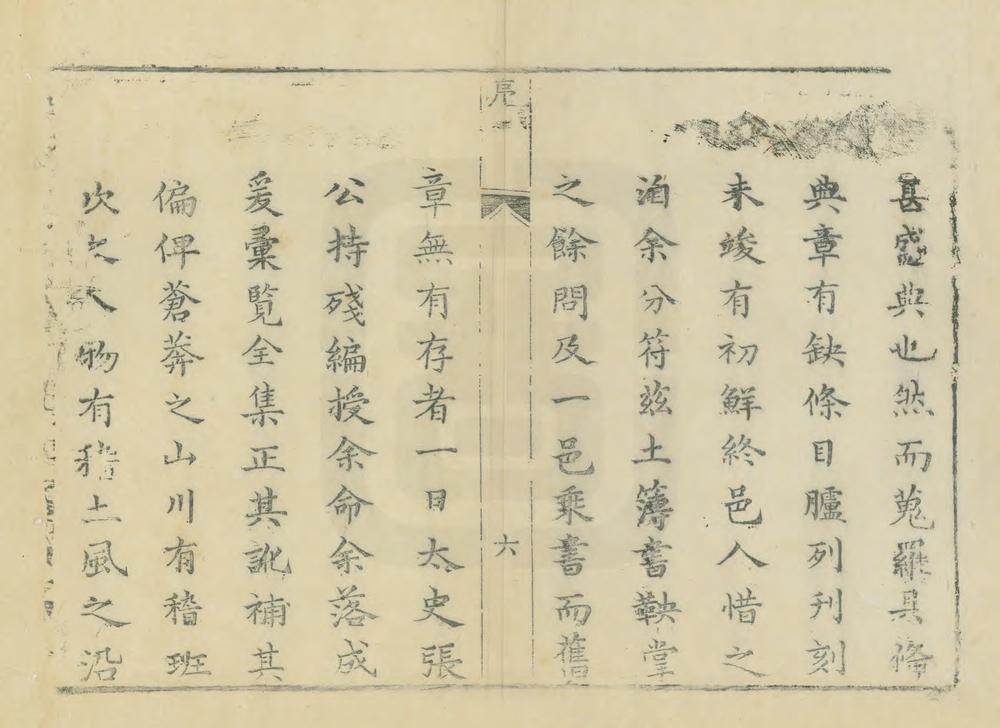 甚盛典也然而蒐羅具脩
典章有缺條目臚列刋刻
未竣有初鮮終邑人惜之
洎余分符茲土簿書鞅掌
之餘問及一邑乗書而舊
序
六
章無有存者一日太史張
公持殘編授余命余落成
爰彚覧全集正其訛補其
偏俾蒼莽之山川有稽班
次之人物有稽土風之沿